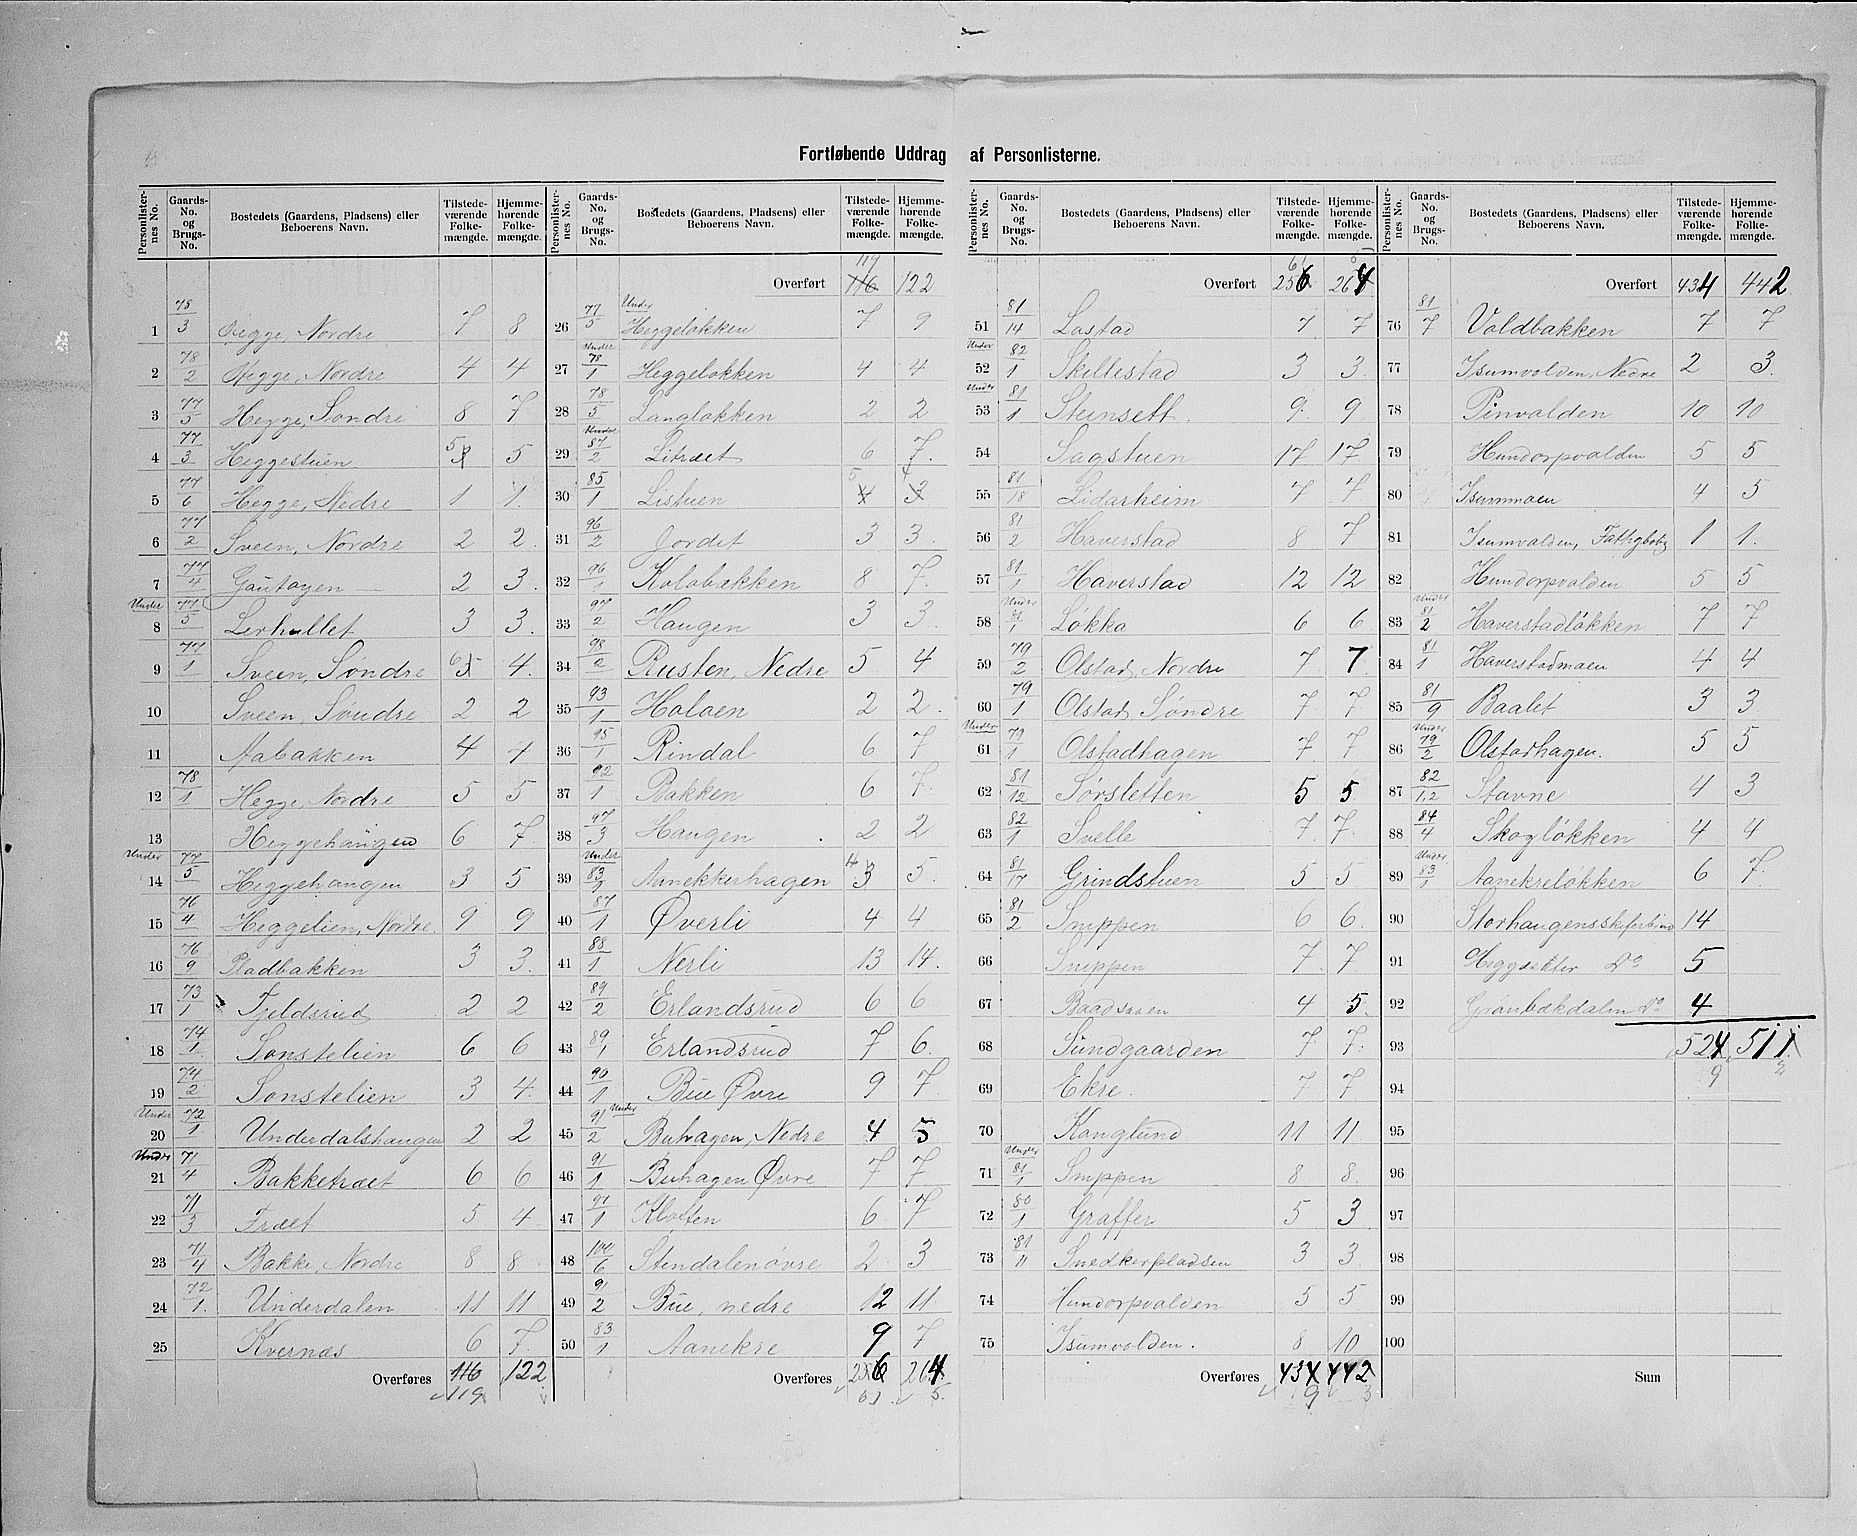 Fortløbende Uddrag af Personlisterne.
Personlisternes No. Gaards-No. og Brugs-No. Bostedets (Gaardens, Pladsens) eller Beboerens Navn. Tilstedeværende Folkemængde. Hjemmehørende Folkemængde.
1 78/3 Hegge, Nordre 7 8
2 78/2 Hegge, Nordre 4 4
3 77/5 Hegge, Søndre 8 7
4 77/3 Heggestuen 5 5
5 77/6 Hegge, Nedre 1 1.
6 77/2 Sveen, Nordre 2 2.
7 77/4 Gautøyen 2 3.
8 Under 77/5 Lerhullet 3 3.
9 77/1 Sveen, Søndre 6 4.
10 Sveen, Søndre 2 2
11 Aabakken 4 4
12 78/1 Hegge, Nordre 5 5
13 Heggehaugen 6 7.
14 Under 77/5 Heggehaugen 3 5
15 76/4 Heggelien, Nordre. 9 9
16 76/9 Pladbakken 3 3.
17 73/1 Fjeldsrud 2 2
18 74/1 Sønstelien 6 6
19 74/2 Sønstelien 3 4.
20 Under 72/1 Underdalshaugen 2 2
21 Under 71/4 Bakketræet 6 6
22 71/3 Træet 5 4
23 71/4 Bakke, Nordre 8 8
24 72/1. Underdalen 11 11
25 Kvernæs 6 7.
Overføres 116 122
119
Personlisternes No. Gaards-No. og Brugs-No. Bostedets (Gaardens, Pladsens) eller Beboerens Navn. Tilstedeværende Folkemængde. Hjemmehørende Folkemængde.
119
Overført 116 122
26 77/5 Under Heggeløkken 7 9
27 Under 78/1 Heggeløkken 4 4
28 78/5 Langløkken 2 2
29 Under 87/2 Litræet 6 7.
30 85/1 Listuen 5
31 96/2 Jordet 3 3.
32 96/1 Kolobakken 8 7.
33 97/2 Haugen 3 3.
34 98/2 Rusten, Nedre 5 4
35 93/1 Holøen 2 2.
36 95/1 Rindal 6 7
37 92/1 Bakken 6 7.
38 97/3 Haugen 2 2
39 Under 83/1 Aanekkerhagen 4 3 5.
40 87/1 Øverli 4 4
41 88/1 Nerli 13 14.
42 89/2 Erlandsrud 6 6
43 89/1 Erlandsrud 7 6.
44 90/1 Bue Øvre 9 7.
45 91/2 Under Buhagen, Nedre 4 5
46 91/1 Buhagen Øvre 7 7
47 97/1 Kloften 6. 7
48 100/6 Stendalen øvre 2 3
49 91/2 Bue, nedre 12 11
50 83/1 Aanekre 9 7
Overføres 256 264
61 5.
Personlisternes No. Gaards-No. og Brugs-No. Bostedets (Gaardens, Pladsens) eller Beboerens Navn. Tilstedeværende Folkemængde. Hjemmehørende Folkemængde.
61 5
Overført 256 264
51 81/14 Lostad 7 7
52 Under 82/1 Skellestad 3 3.
53 Under 81/1 Steinsett. 9. 9
54 Sagstuen 17 17
55 81/18 Lidarheim 7 7
56 81/2 Haverstad 8 7
57 81/1 Haverstad 12 12
58 Under 81/1 Løkka 6 6
59 79/2 Olstad, Nordre 7 7.
60 79/1 Olstad, Søndre 7 7
61 Under 79/1 Olstadhagen 7 7
62 81/12 Sørsletten 5 5
63 82/1 Svelle 7 7.
64 81/17 Grindstuen 5 5
65 81/2 Snippen 6 6.
66 Snippen 7 7.
67 Baadsaaen 4 5.
68 Sundgaarden 7 7.
69 Ekre. 7 7.
70 Konglund 11 11
71 Under 81/1 Snippen 8 8.
72 80/1 Graffer 5 3
73 81/11 Snedkerpladsen 3 3.
74 Hundorpvolden 5 5
75 Isumvolden. 8 10
Overføres 434 442
9 3
Personlisternes No. Gaards-No. og Brugs-No. Bostedets (Gaardens, Pladsens) eller Beboerens Navn. Tilstedeværende Folkemængde. Hjemmehørende Folkemængde.
Overført 434 442
76 81/7 Voldbakken 7 7
77 Isumvolden, Nedre 2 3.
78 Pinvolden 10 10
79 Hundorpvolden 5 5
80 Isummoen 4 5
81 Isumvolden, Fattigbolig 1 1.
82 Hundorpvolden 5 5
83 Under 81/2 Haverstadløkken 7 7
84 81/1 Haverstadmoen 4 4
85 81/9 Baalet 3 3
86 Under 79/2 Olstadhagen. 5 5
87 82/1,2 Stavne 4 3
88 84/4 Skogløkken 4 4
89 Under 83/1 Aanekreløkken 6 7.
90 14
91 Do 5
92 Do 4
93 524 511
9
94
95
96
97
98
99
100
Sum